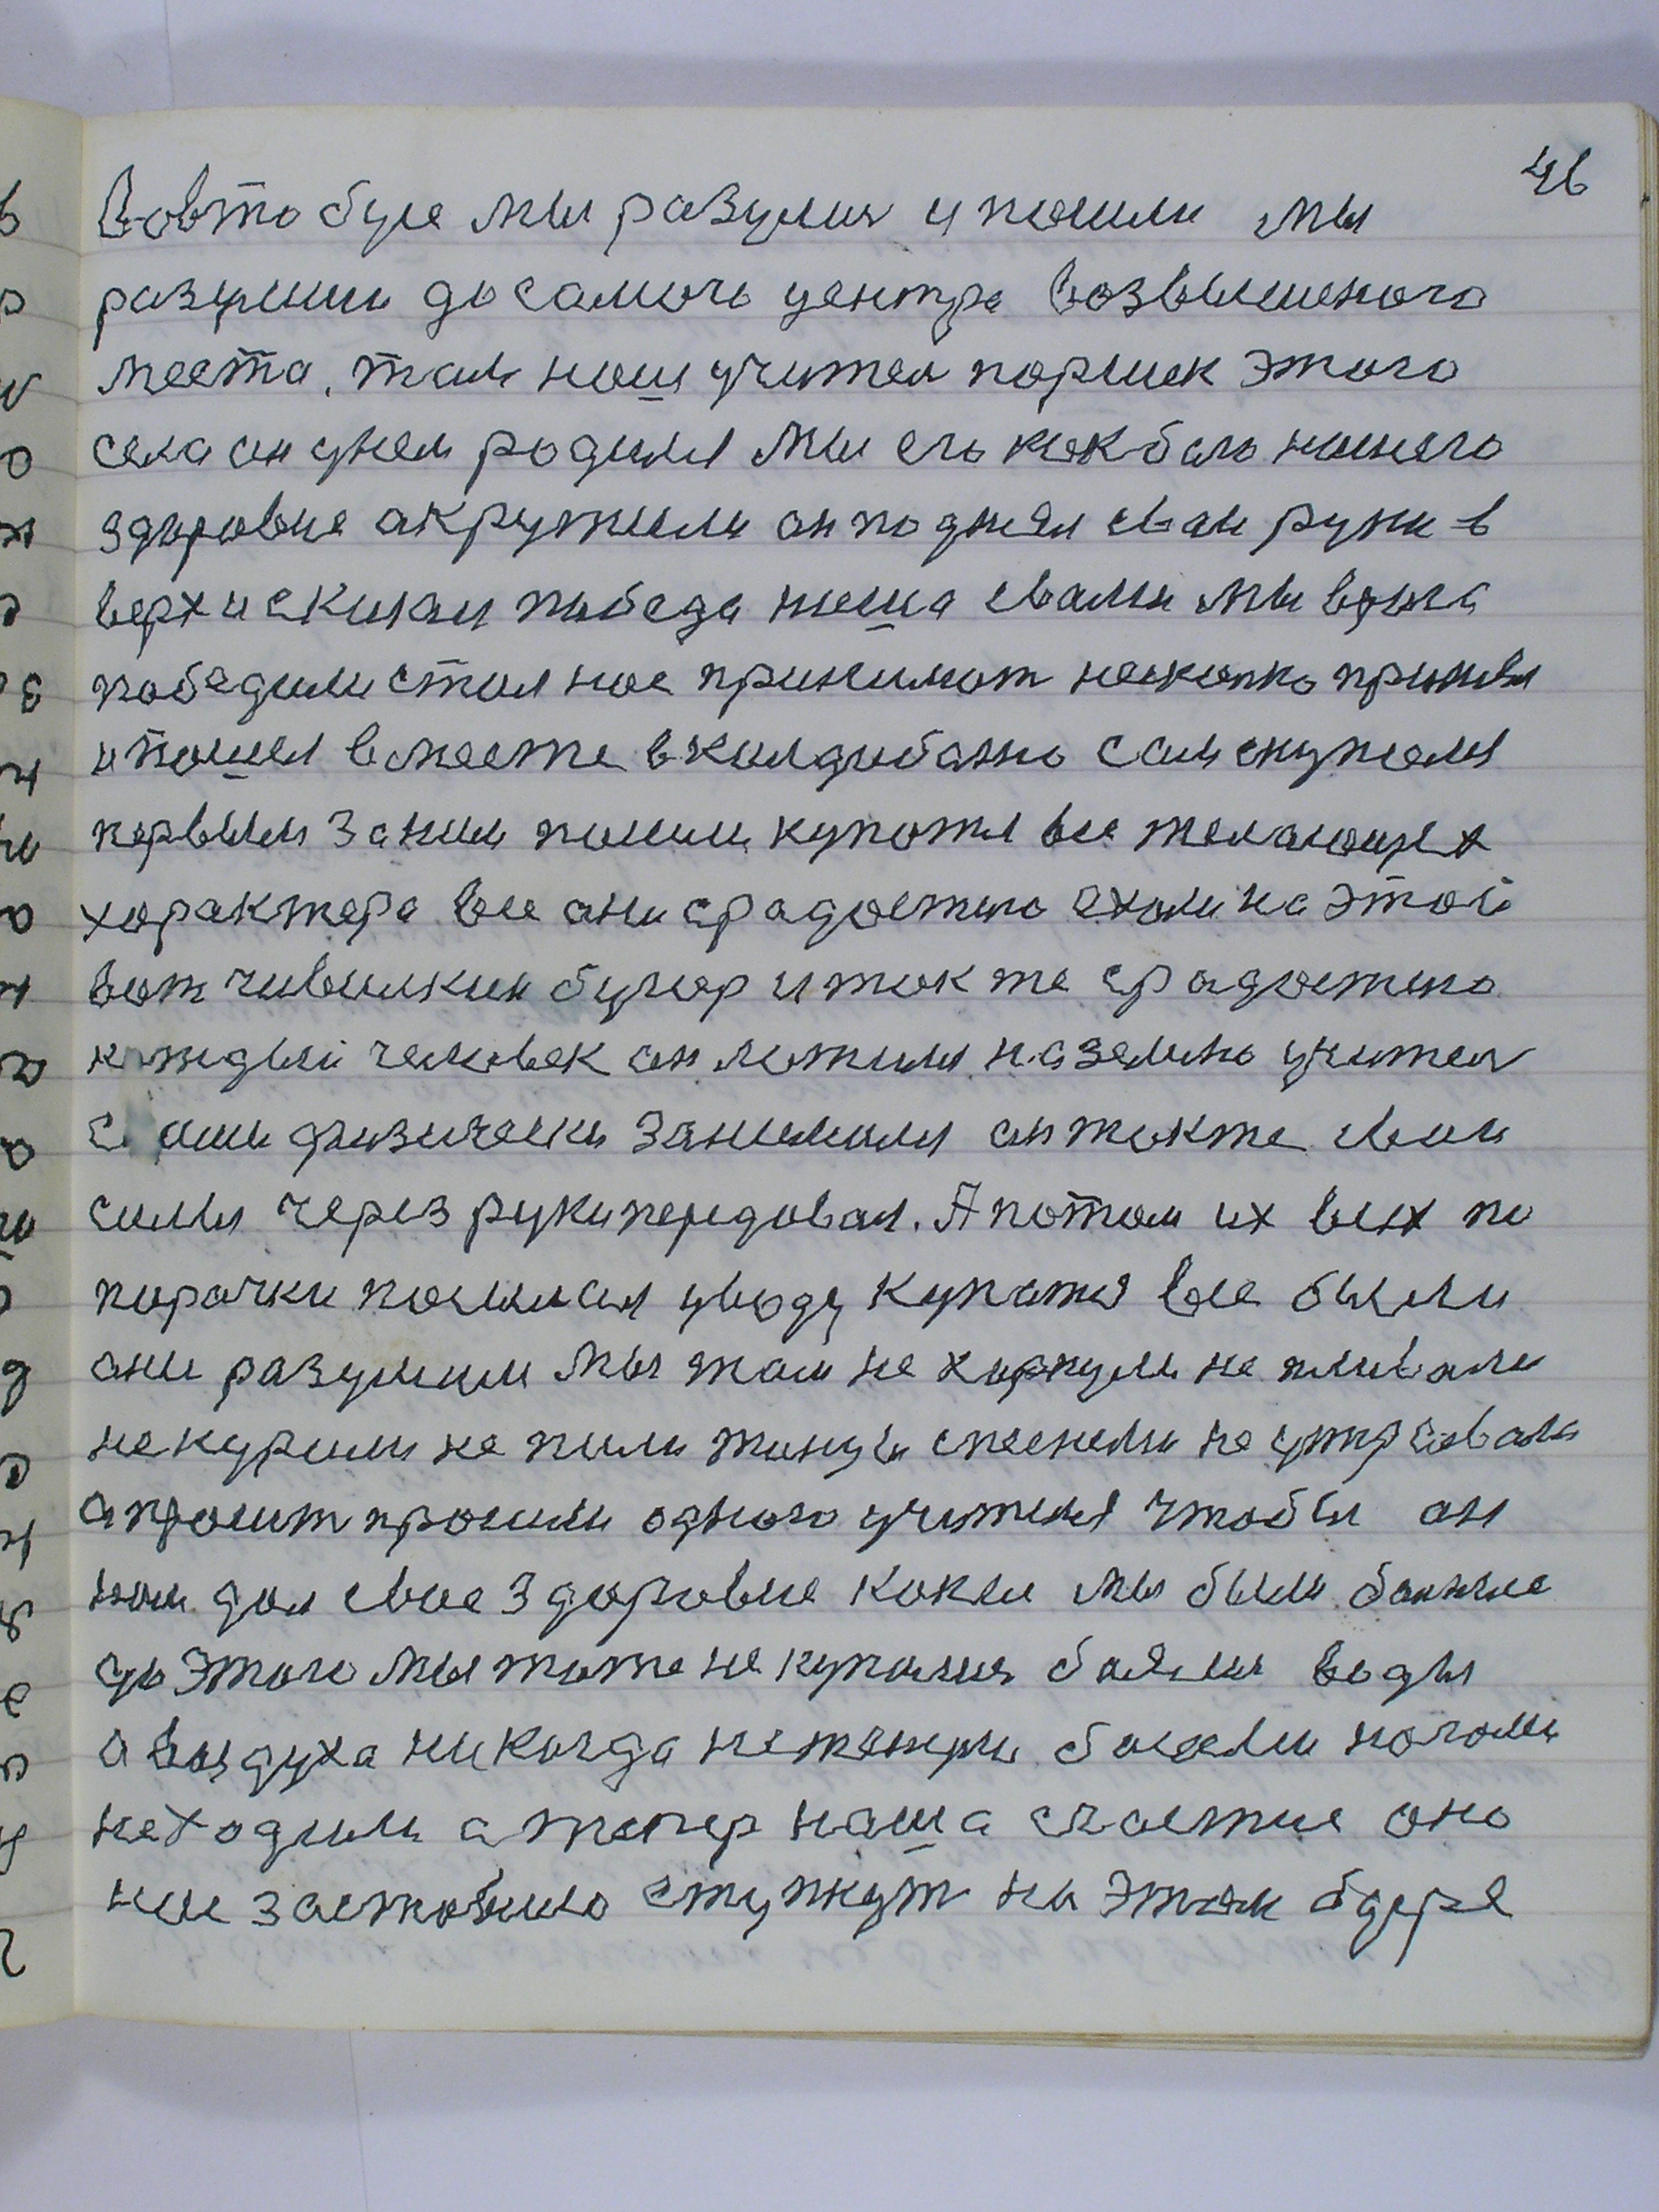 46
Вовтобусе мы разулися и пошли мы
разувшии до самого центра возвышеного
места. там наш учител поршек этого
села он унем родился мы его как бало нашего
здоровие акружили он поднял сваи руки в
верх и скизал победа наша свами мы врага
победили стал нас принимат несколко принял
и пошел вместе вколдибанно сам скупался
первым заним пошли купатся все желающех
характера все они срадостию ехали на этой
вот чивилкин бугор и так же срадостию
каждый человек он ложился наземлю учител
с ними физически занимался он также свои
силы через руки передовал. А потом их всех по
порачки посылал уводу купатся все были
они разувшии мы там не харкули не пливали
некурили не пили
апрошт просили одного учителя чтобы он
нам дал свое здоровие какие мы были болные
до этого мы тоже не купалися боялися воды
а воздуха никогда нетянули боеали ногами
неходили а тепер наша счастие оно
нас заставило ступнут на этом бугре